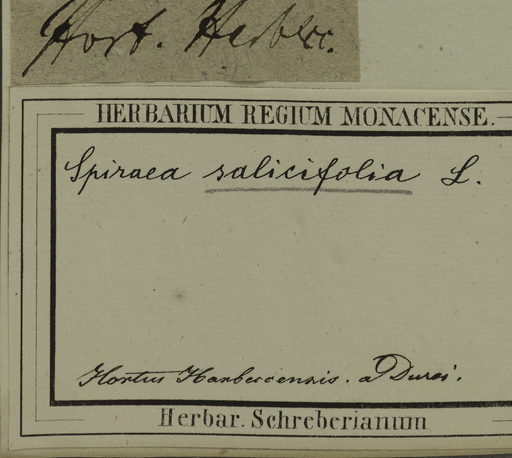 Hort. Harbecc.
HERBARIUM REGIUM MONACENSE.
Spiraea salicifolia L.
Hortus Harbeccensis. a Duroi.
Herbar. Schreberianum